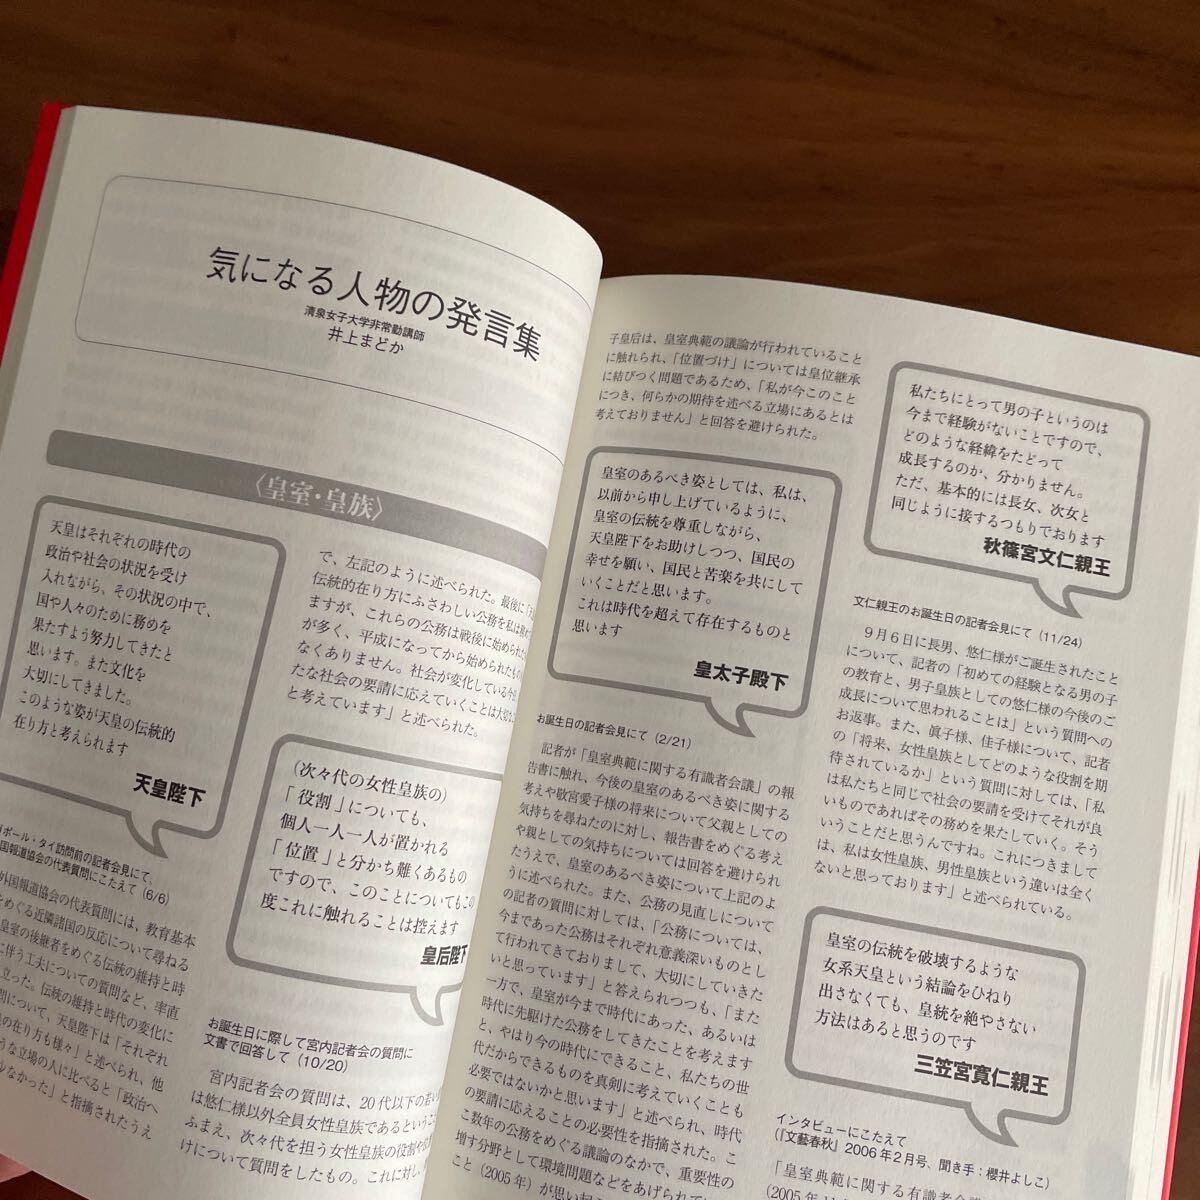 気になる人物の発言集
清泉女子大学非常勤講師
井上まどか
〈皇室・皇族〉
天皇はそれぞれの時代の
政治や社会の状況を受け
入れながら、その状況の中で、
国や人々のために務めを
果たすよう努力してきたと
思います。また文化を
大切にしてきました。
このような姿が天皇の伝統的
在り方と考えられます
天皇陛下
ポール・タイ訪問前の記者会見にて、
国報道協会の代表質問にこたえて (6/6)
外国報道協会の代表質問には、教育基本
をめぐる近隣諸国の反応について尋ねる
皇室の後継者をめぐる伝統の維持と時
に伴う工夫についての質問など、率直
立った。伝統の維持と時代の変化に
問について、天皇陛下は「それぞれ
の在り方も様々」と述べられ、他
うな立場の人に比べると「政治へ
少なかった」と指摘されたうえ
で、左記のように述べられた。最後に「天
伝統的在り方にふさわしい公務を私は務め
ますが、これらの公務は戦後に始められた
が多く、平成になってから始められたもの
なくありません。社会が変化している今日
たな社会の要請に応えていくことは大切
と考えています」と述べられた。
(次々代の女性皇族の)
「役割」についても、
個人一人一人が置かれる
「位置」と分かち難くあるもの
ですので、このことについてもこの
度これに触れることは控えます
皇后陛下
お誕生日に際して宮内記者会の質問に
文書で回答して (10/20)
宮内記者会の質問は、20代以下の若い
は悠仁様以外全員女性皇族であるという
ふまえ、次々代を担う女性皇族の役割や位
けについて質問をしたもの。これに対し、
子皇后は、皇室典範の議論が行われていること
に触れられ、「位置づけ」については皇位継承
に結びつく問題であるため、「私が今このこと
につき、何らかの期待を述べる立場にあるとは
考えておりません」と回答を避けられた。
皇室のあるべき姿としては、私は、
以前から申し上げているように、
皇室の伝統を尊重しながら、
天皇陛下をお助けしつつ、国民の
幸せを願い、国民と苦楽を共にして
いくことだと思います。
これは時代を超えて存在するものと
思います
皇太子殿下
お誕生日の記者会見にて (2/21)
記者が「皇室典範に関する有識者会議」の報
告書に触れ、今後の皇室のあるべき姿に関する
考えや敬宮愛子様の将来について父親としての
気持ちを尋ねたのに対し、報告書をめぐる考え
や親としての気持ちについては回答を避けられ
たうえで、皇室のあるべき姿について上記のよ
うに述べられた。また、公務の見直しについて
の記者の質問に対しては、「公務については、
今まであった公務はそれぞれ意義深いものとし
て行われてきておりまして、大切にしていきた
いと思っています」と答えられつつも、「また
一方で、皇室が今まで時代にあった、あるいは
時代に先駆けた公務をしてきたことを考えます
と、やはり今の時代にできること、私たちの世
代だからできるものを真剣に考えていくことも
必要ではないかと思います」と述べられ、時代
の要請に応えることの必要性を指摘された。こ
こ数年の公務をめぐる議論のなかで、重要性の
増す分野として環境問題などをあげられてい
こと (2005年) が思い起こ
私たちにとって男の子というのは
今まで経験がないことですので、
どのような経緯をたどって
成長するのか、分かりません。
ただ、基本的には長女、次女と
同じように接するつもりでおります
秋篠宮文仁親王
文仁親王のお誕生日の記者会見にて (11/24)
9月6日に長男、悠仁様がご誕生されたこと
について、記者の「初めての経験となる男の子
の教育と、男子皇族としての悠仁様の今後のご
成長について思われることは」という質問への
お返事。また、眞子様、佳子様について、記者
の「将来、女性皇族としてどのような役割を期
待されているか」という質問に対しては、「私
は私たちと同じで社会の要請を受けてそれが良
いものであればその務めを果たしていく。そう
いうことだと思うんですね。これにつきまして
は、私は女性皇族、男性皇族という違いは全く
ないと思っております」と述べられている。
皇室の伝統を破壊するような
女系天皇という結論をひねり
出さなくても、皇統を絶やさない
方法はあると思うのです
三笠宮寛仁親王
インタビューにこたえて
(『文藝春秋』2006年2月号、聞き手：櫻井よしこ)
「皇室典範に関する有識者会議
(2005年11